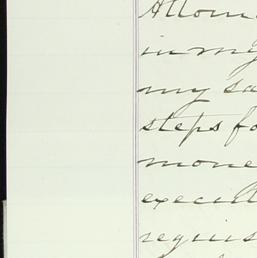 Attorn
in my
my sa
steps fo
mone
execut
requis